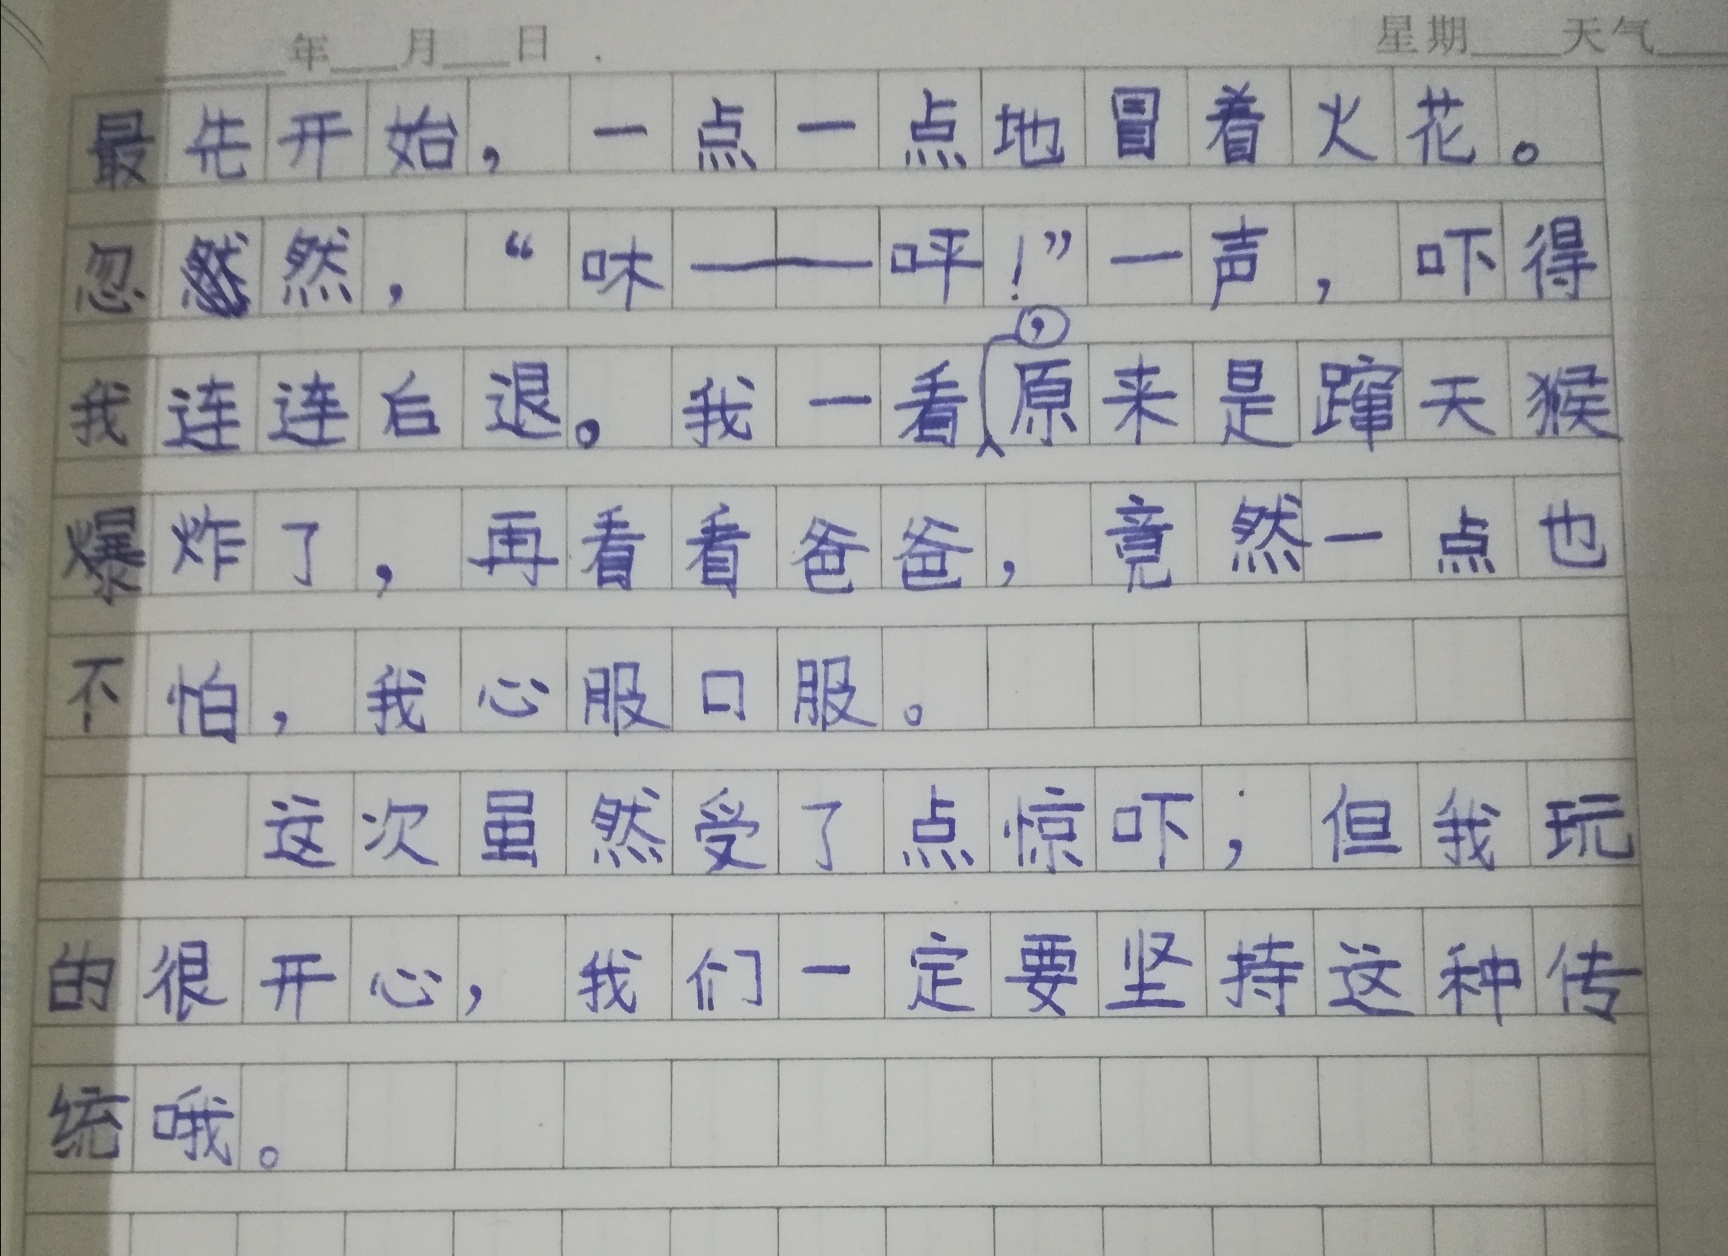 年 月 日 星期 天气
最先开始，一点一点地冒着火花。
忽然，“咻——呯！”一声，吓得
我连连后退。我一看，原来是蹿天猴
爆炸了，再看看爸爸，竟然一点也
不怕，我心服口服。
这次虽然受了点惊吓；但我玩
的很开心，我们一定要坚持这种传
统哦。